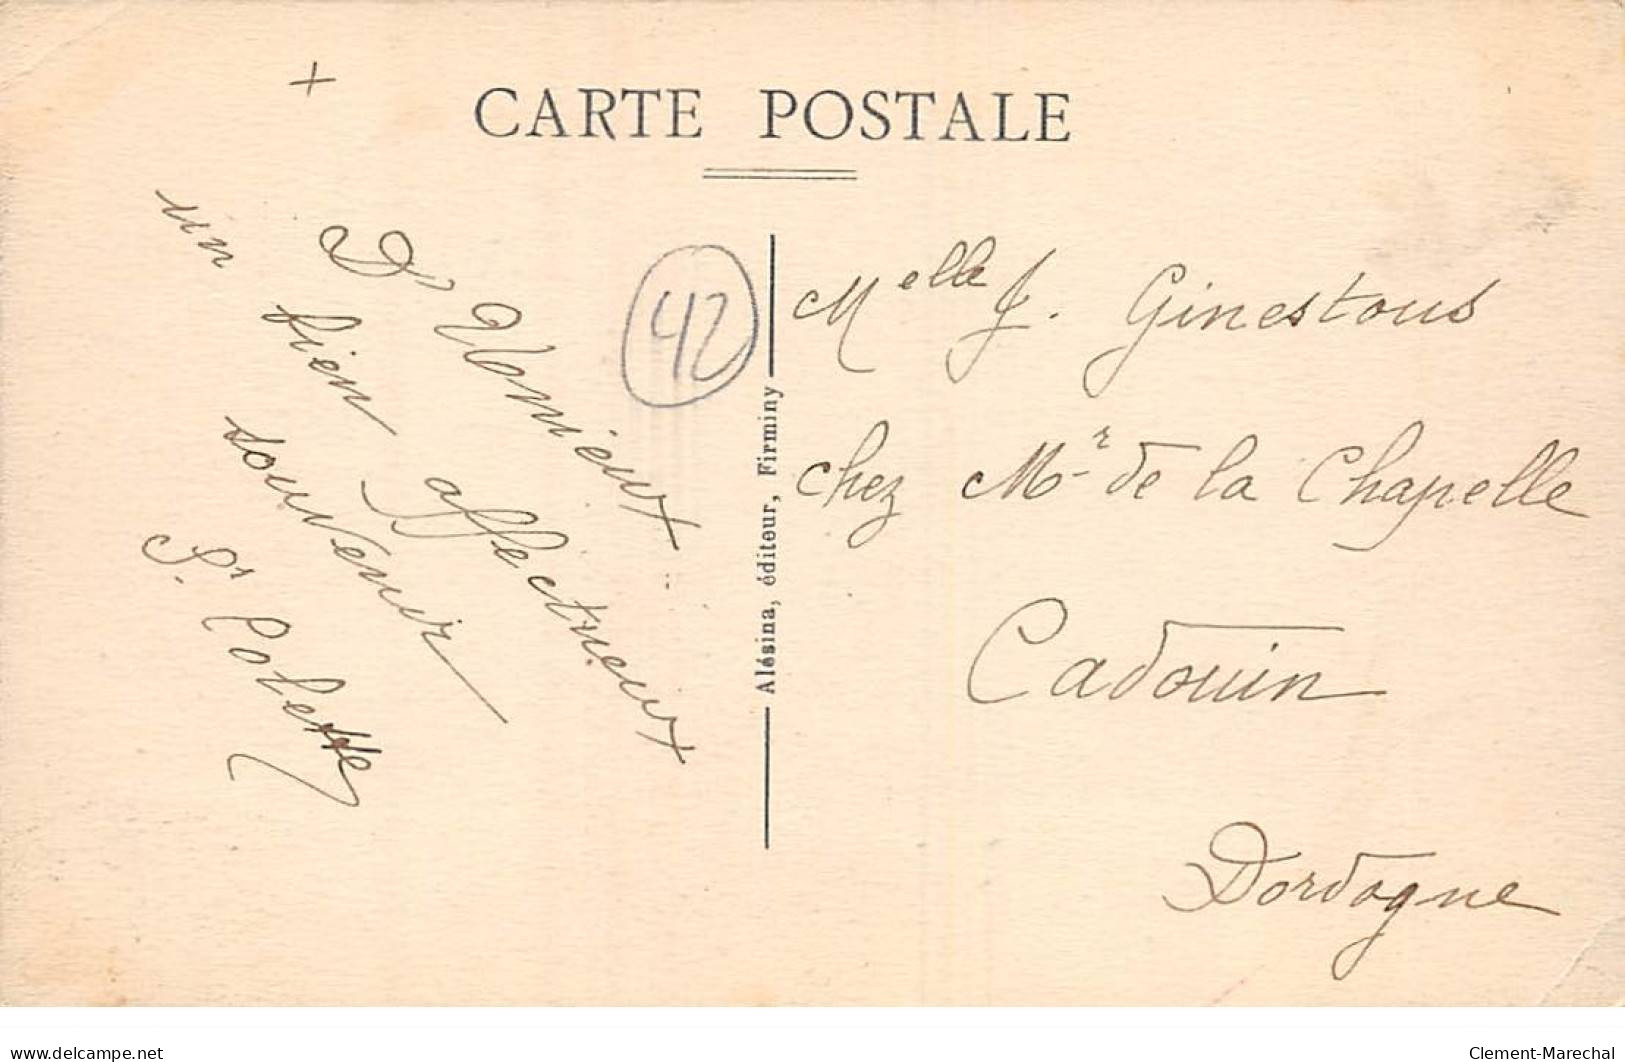 +
CARTE POSTALE
D'Unieux
un bien affectueux
souvenir
Sr Colette
42
Alésina, éditeur, Firminy
Melle J. Ginestous
chez Mr de la Chapelle
Cadouin
Dordogne
www.delcampe.net
Clement-Marechal